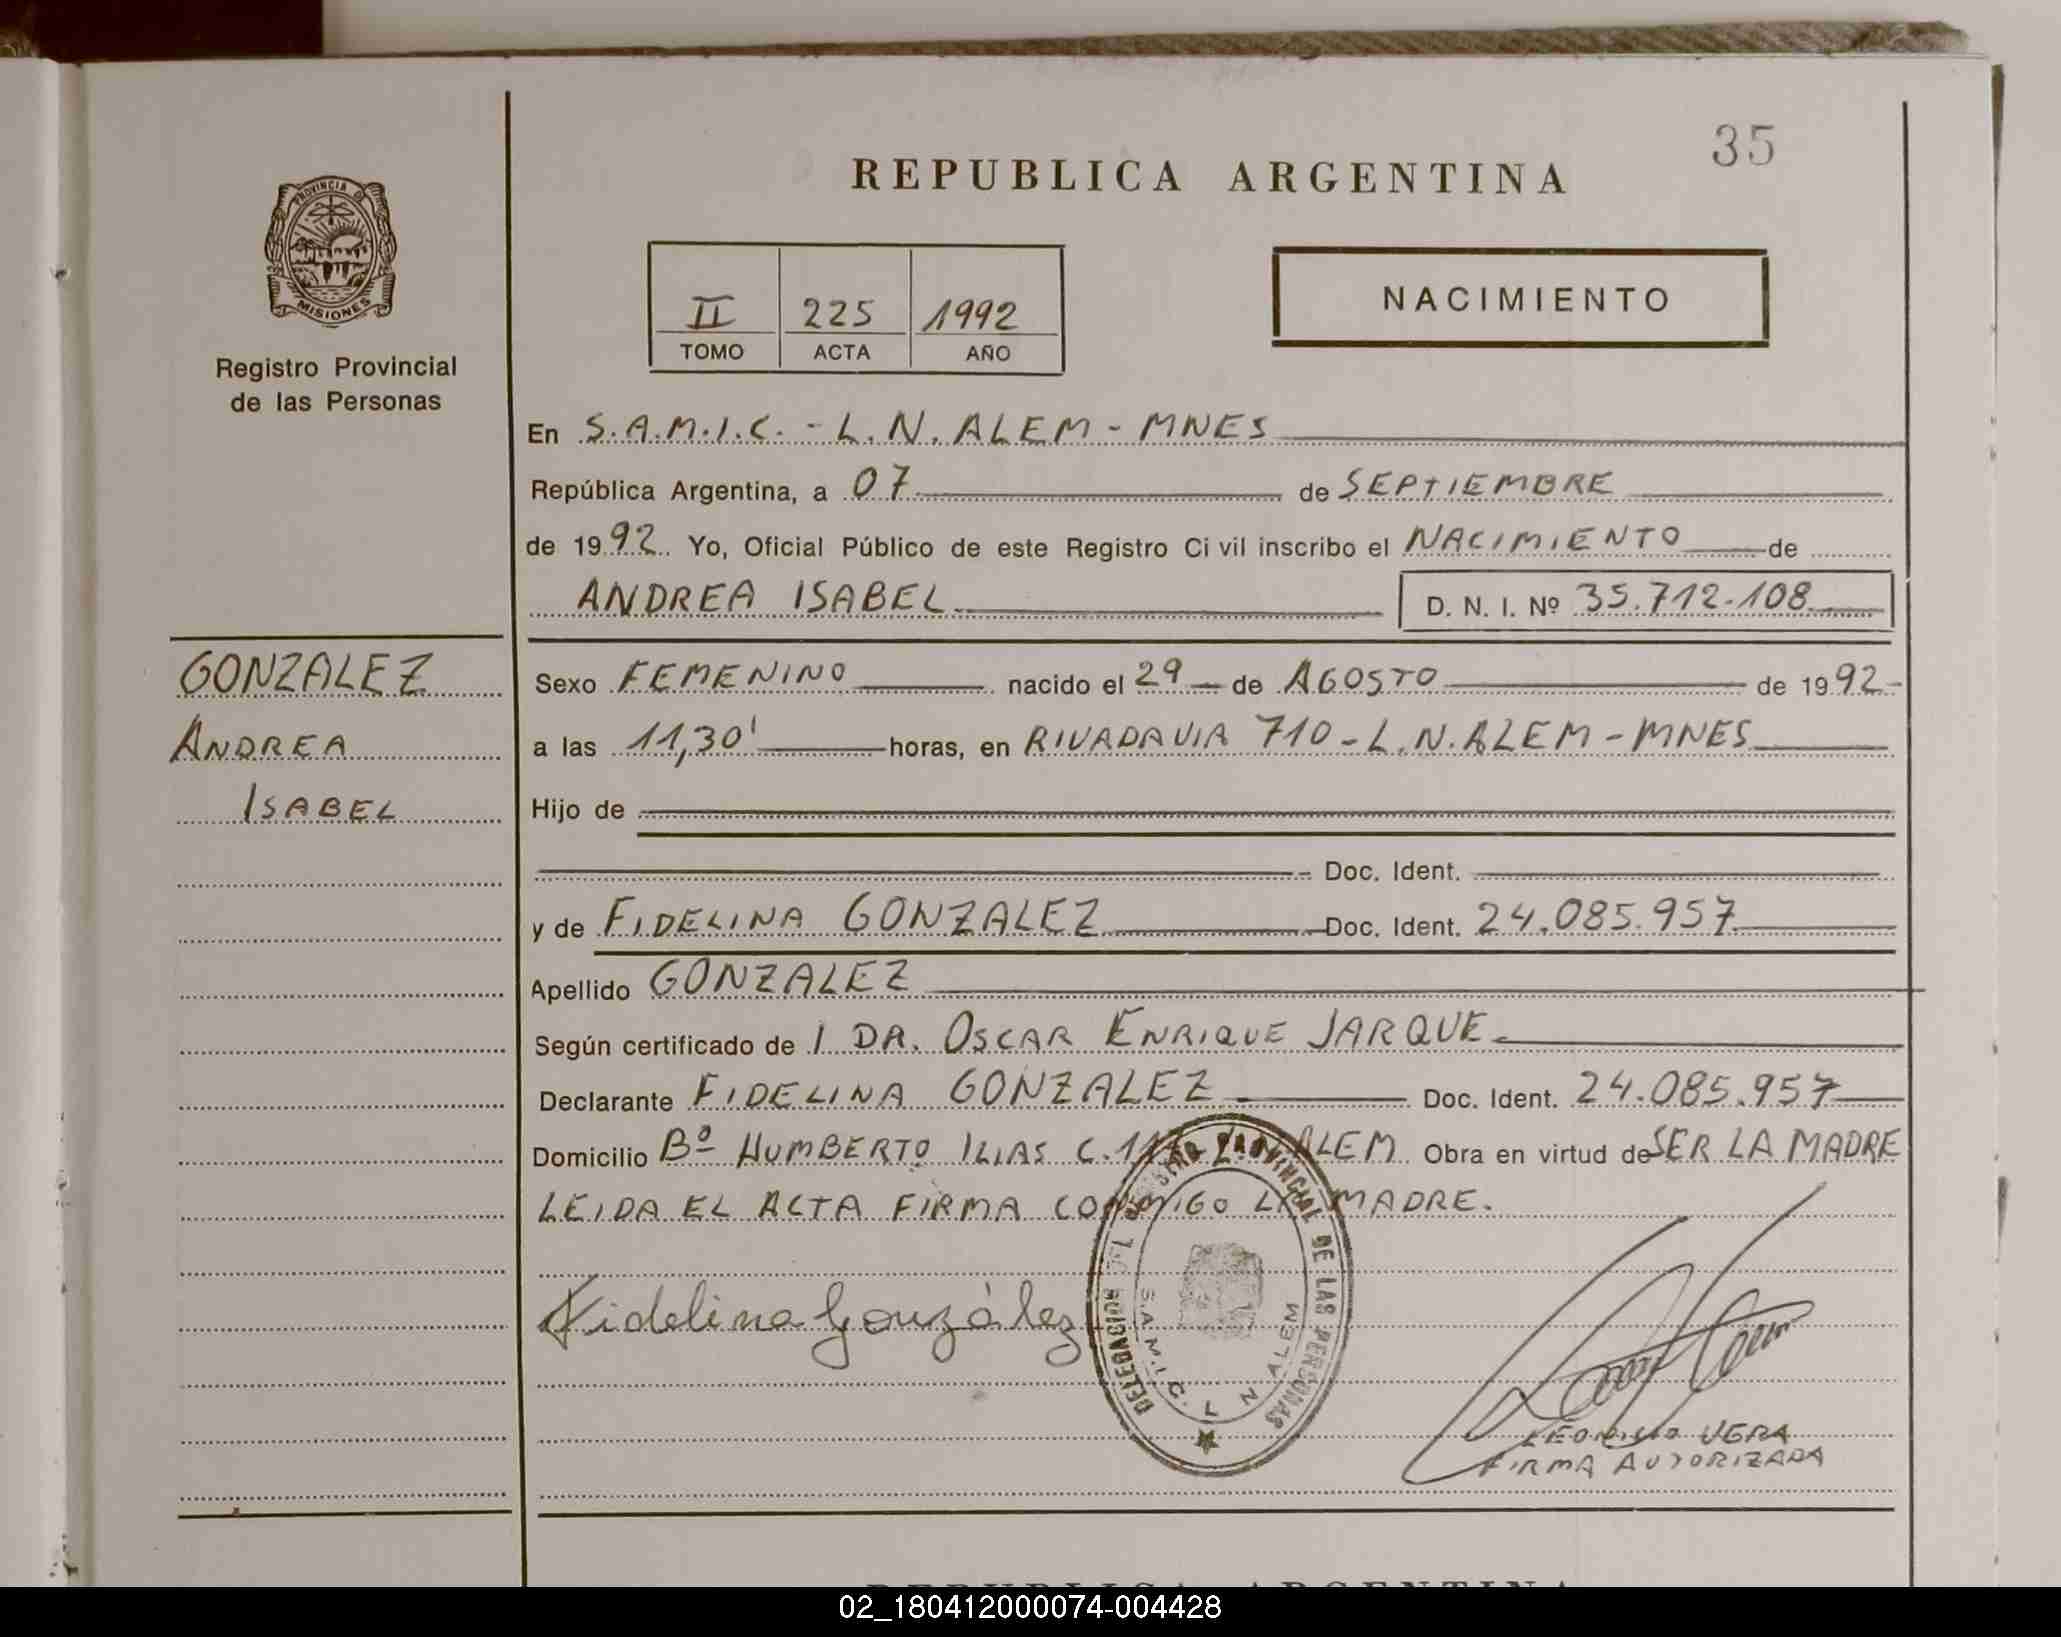 35
REPUBLICA ARGENTINA
PROVINCIA DE
MISIONES
Registro Provincial
de las Personas
II 225 1992
TOMO ACTA AÑO
NACIMIENTO
En S.A.M.I.C. - L.N. ALEM - MNES
República Argentina, a 07 de SEPTIEMBRE
de 1992. Yo, Oficial Público de este Registro Ci vil inscribo el NACIMIENTO de
ANDREA ISABEL D. N. I. Nº 35.712.108
GONZALEZ
ANDREA
ISABEL
Sexo FEMENINO nacido el 29 de AGOSTO de 1992-
a las 11,30' horas, en RIVADAVIA 710 - L.N. ALEM - MNES
Hijo de
Doc. Ident.
y de FIDELINA GONZALEZ Doc. Ident. 24.085.957
Apellido GONZALEZ
Según certificado de l DR. OSCAR ENRIQUE JARQUE
Declarante FIDELINA GONZALEZ Doc. Ident. 24.085.957
Domicilio Bº HUMBERTO ILIAS C. ALEM Obra en virtud de SER LA MADRE
LEIDA EL ACTA FIRMA CONMIGO LA MADRE.
Fidelina González
DELEGACION DEL REGISTRO PROVINCIAL DE LAS PERSONAS
S.A.M.I.C. L N ALEM
VERA
FIRMA AUTORIZADA
REPUBLICA ARGENTINA
02_180412000074-004428